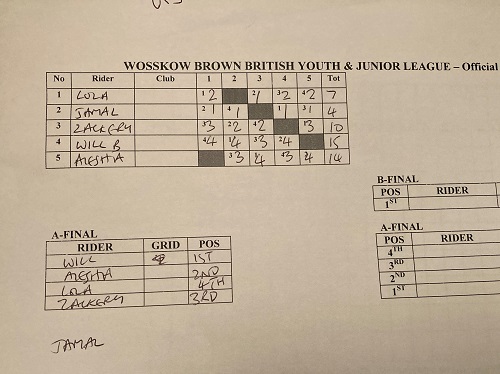 WOSSKOW BROWN BRITISH YOUTH & JUNIOR LEAGUE – Official
No Rider Club 1 2 3 4 5 Tot
1 LOLA 1 2 2 1 3 2 4 2 7
2 JAMAL 2 1 4 1 1 1 3 1 4
3 ZACKERY 3 3 2 2 4 2 1 3 10
4 WILL B 4 4 1 4 3 3 2 4 15
5 ALESHA 3 3 1 4 4 3 2 4 14
B-FINAL
POS RIDER
1ST
A-FINAL
RIDER GRID POS
WILL 1ST
ALESHA 2ND
LOLA 4TH
ZACKERY 3RD
A-FINAL
POS RIDER
4TH
3RD
2ND
1ST
JAMAL